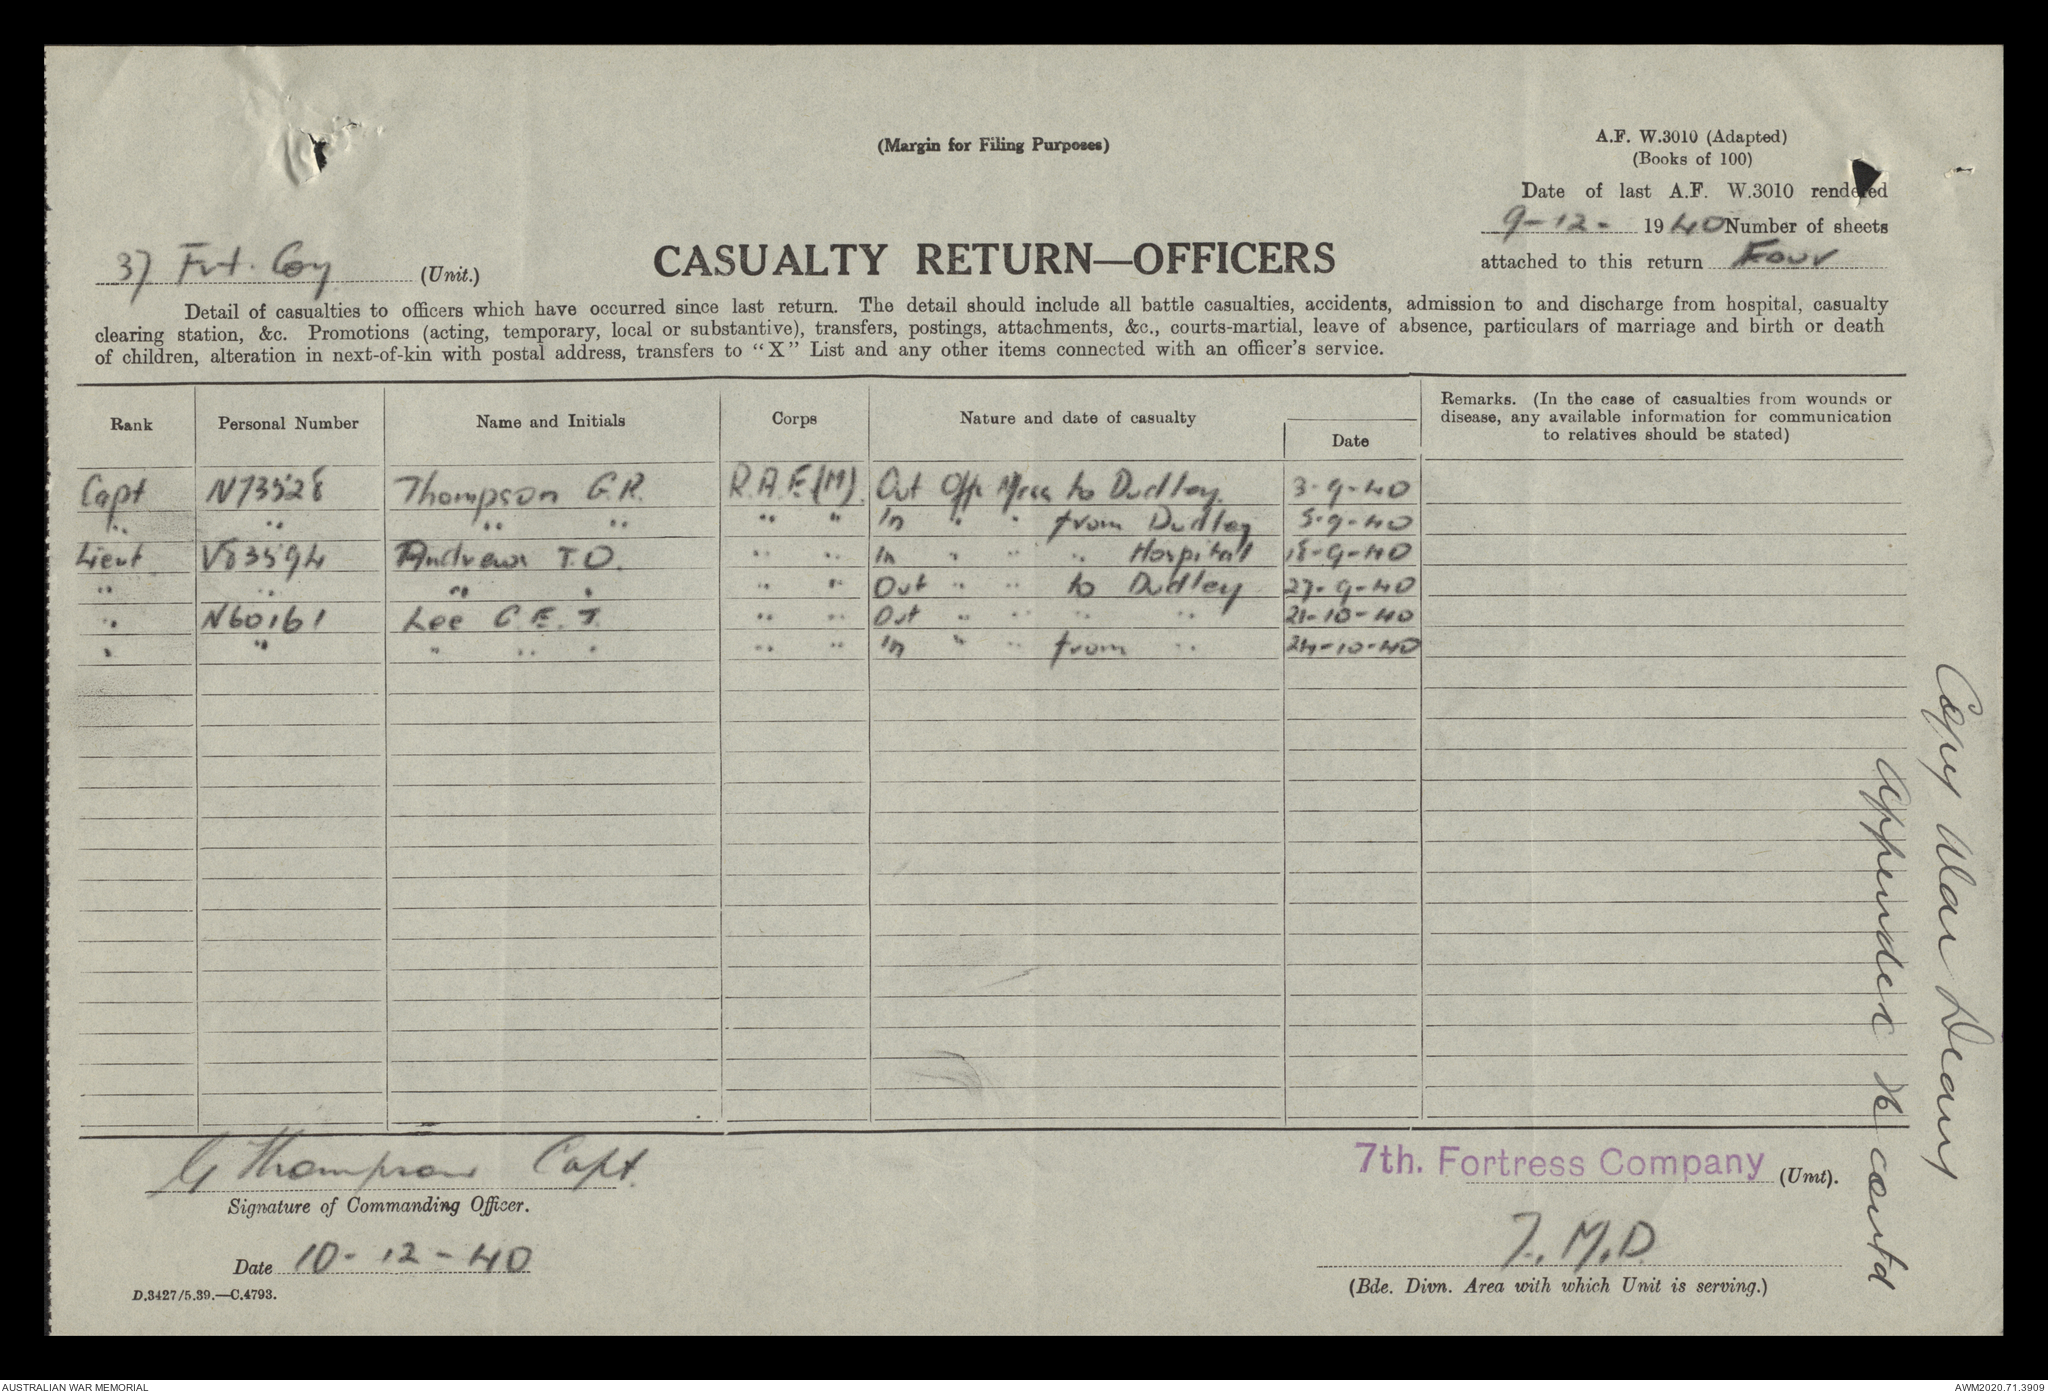 (Margin for Filing Purposes)
A.F. W.3010 (Adapted)
(Books of 100)
Date of last A.F. W.3010 rendered
9-12- 1940 Number of sheets
attached to this return Four
37 Frt. Coy (Unit.)
CASUALTY RETURN—OFFICERS
Detail of casualties to officers which have occurred since last return. The detail should include all battle casualties, accidents, admission to and discharge from hospital, casualty
clearing station, &c. Promotions (acting, temporary, local or substantive), transfers, postings, attachments, &c., courts-martial, leave of absence, particulars of marriage and birth or death
of children, alteration in next-of-kin with postal address, transfers to "X" List and any other items connected with an officer's service.
Rank Personal Number Name and Initials Corps Nature and date of casualty Date Remarks. (In the case of casualties from wounds or
disease, any available information for communication
to relatives should be stated)
Capt N73528 Thompson G.R. R.A.E.(M) Out Offr Mess to Dudley. 3-9-40
" " " " " " In " " from Dudley 5-9-40
Lieut V83594 Andrews T.O. " " In " " " Hospital 18-9-40
" " " " " " Out " " to Dudley 27-9-40
" N60161 Lee C.E.T. " " Out " " " " 21-10-40
" " " " " " " In " " from " 24-10-40
G Thompson Capt.
Signature of Commanding Officer.
Date 10-12-40
D.3427/5.39.—C.4793.
7th. Fortress Company (Unit).
7. M.D.
(Bde. Divn. Area with which Unit is serving.)
Copy War Diary
Appendix contd
AUSTRALIAN WAR MEMORIAL
AWM2020.71.3909